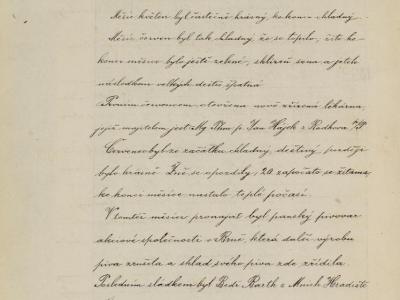 Měsíc květen byl částečně krásný, ke konci chladný.
Měsíc červen byl tak chladný, že se teplo, žito ko
konci měsíce bylo ještě zelené, sklizeň sena a jetele
následkem velkých dešťů špatná
Prvním červencem otevřena nově zřízená lékárna,
jejíž majitelem jest Mg Phm p. Jan Hájek z Radkova
Červenec byl ze začátku chladný, deštivý, později
bylo krásně. Žně se opozdily, 20 započato se žitama,
ke konci měsíce nastalo teplé počasí.
V tomtéž měsíci pronajat byl panský pivovar
akciové společnosti v Brně, která další výrobu
piva zrušila a sklad svého piva zde zřídila.
Posledním sládkem byl Bedř. Barth z Mnich. Hradiště